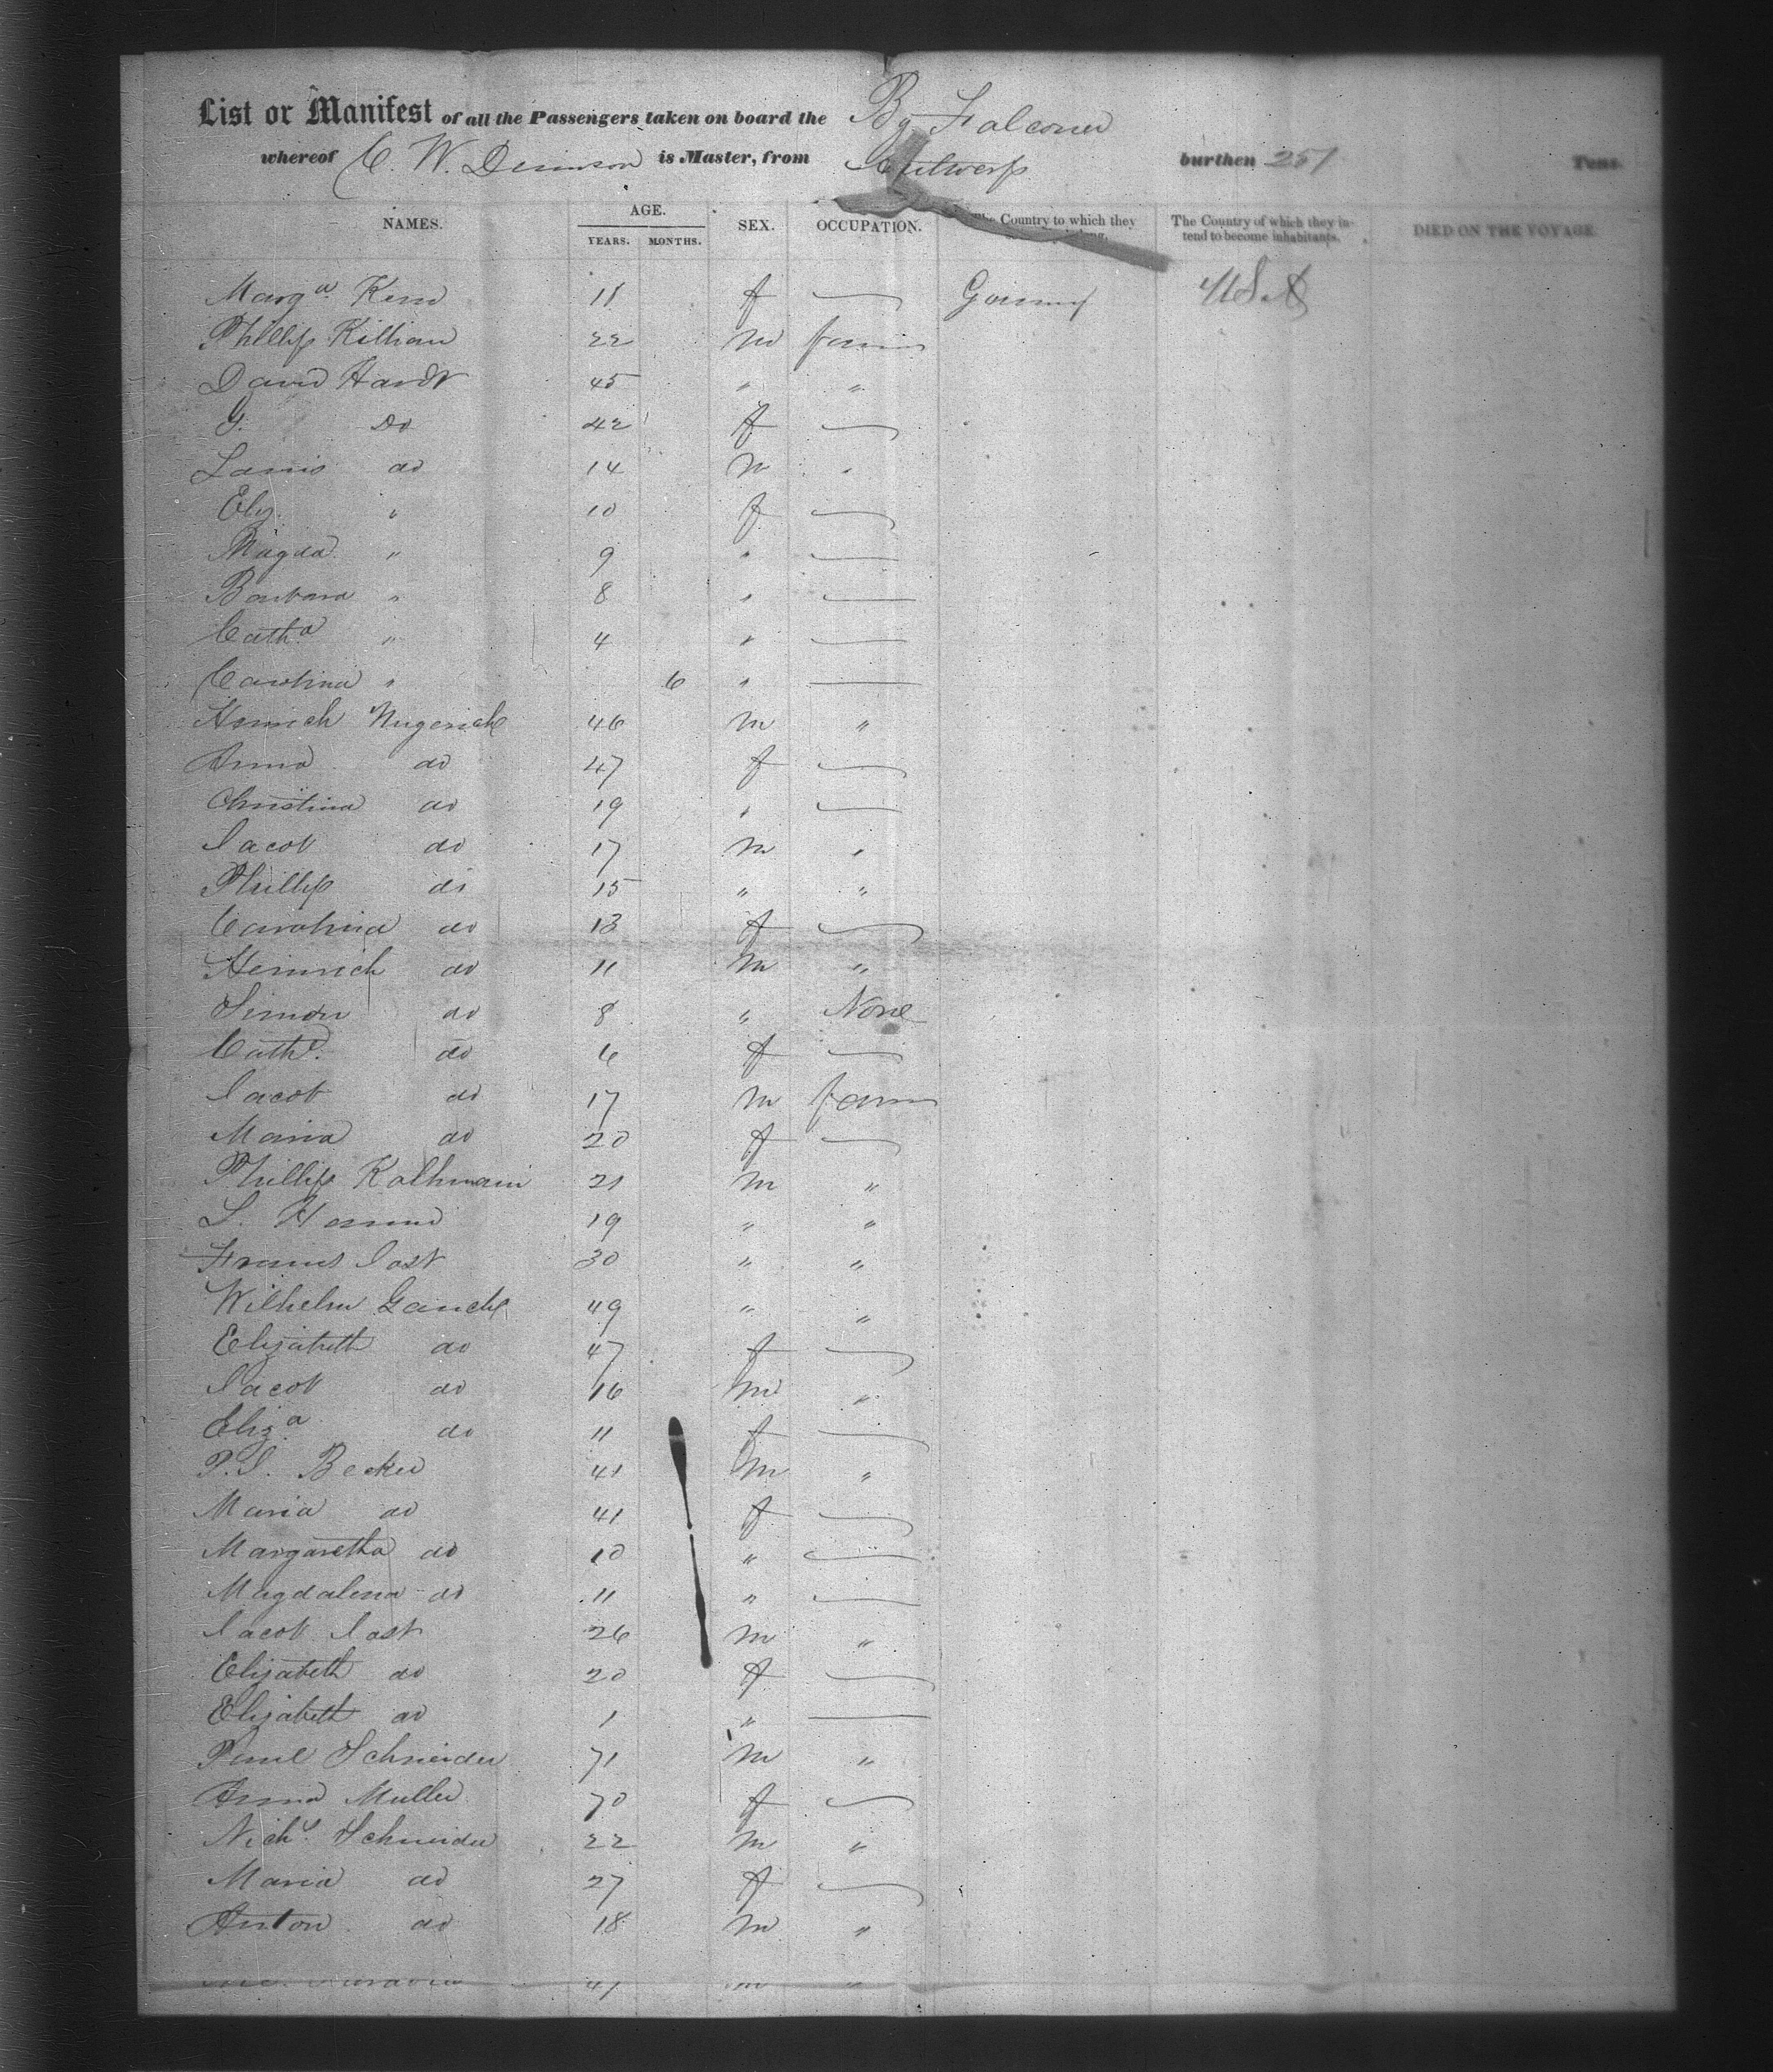 List or Manifest of all the Passengers taken on board the Bg Falconer
whereof C. W. Dennison is Master, from Antwerp burthen 251 Tons.
NAMES. AGE. YEARS. MONTHS. SEX. OCCUPATION. The Country to which they The Country of which they intend to become inhabitants. DIED ON THE VOYAGE
Marga. Kern 11 f — Germany U.S.A
Phillip Killian 22 m farmer
David Hardt 45 " "
G. Do 42 f —
Louis do 14 m "
Eliz. " 10 f —
Magda " 9 " —
Barbara " 8 " —
Catha " 4 " —
Carolina " 6 " —
Heinrich 46 m "
Anna do 47 f —
Christina do 19 " —
Jacob do 17 m "
Phillip do 15 " "
Carolina do 13 f —
Heinrich do 11 m "
Simon do 8 " None
Catha. do 6 f —
Jacob do 17 m farm
Maria do 20 f —
Phillip Kolhmann 21 m "
L. 19 " "
Jost 30 " "
Wilhelm 49 " "
Elizabeth do 47 f —
Jacob do 16 m "
Eliza. do 11 f —
P. J. Becker 41 m "
Maria do 41 f —
Margaretha do 10 " —
Magdalena do 11 " —
Jacob Jost 26 m "
Elizabeth do 20 f —
Elizabeth do 1 " —
Schneider 71 m "
Anna Muller 70 f —
Nichs. Schneider 22 m "
Maria do 27 f —
Anton do 18 m "
41 m "